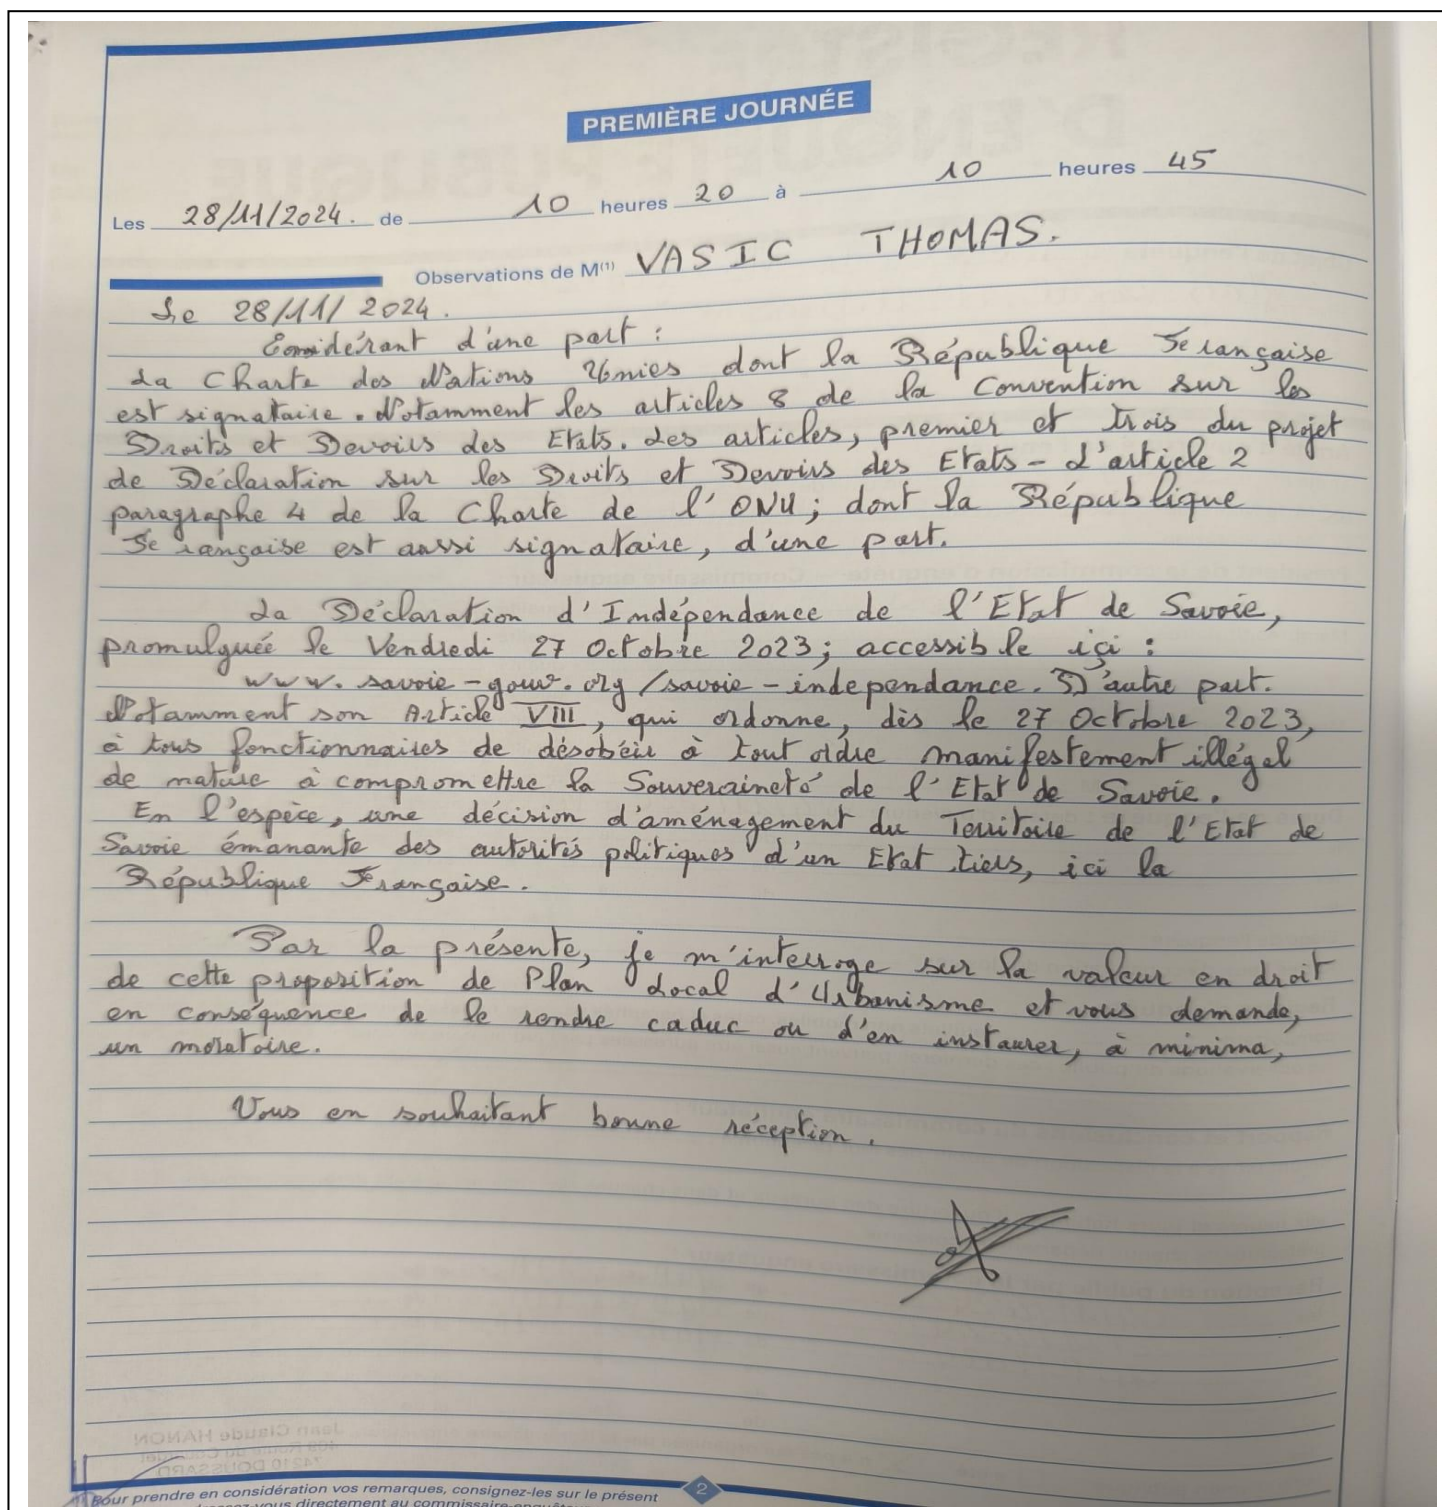 PREMIÈRE JOURNÉE
Les 28/11/2024. de 10 heures 20 à 10 heures 45
Observations de M(1) VASIC THOMAS.
Le 28/11/2024.
Considérant d'une part :
La Charte des Nations Unies dont la République Française
est signataire. Notamment les articles 8 de la Convention sur les
Droits et Devoirs des Etats. Les articles, premier et trois du projet
de Déclaration sur les Droits et Devoirs des Etats - L'article 2
paragraphe 4 de la Charte de l'ONU; dont la République
Française est aussi signataire, d'une part.
La Déclaration d'Indépendance de l'Etat de Savoie,
promulguée le Vendredi 27 Octobre 2023; accessible içi :
www.savoie-gouv.org/savoie-independance. D'autre part.
Notamment son Article VIII, qui ordonne, dès le 27 Octobre 2023,
à tous fonctionnaires de désobéir à tout ordre manifestement illégal
de nature à compromettre la Souveraineté de l'Etat de Savoie.
En l'espèce, une décision d'aménagement du Territoire de l'Etat de
Savoie émanante des autorités politiques d'un Etat tiers, ici la
République Française.
Par la présente, je m'interroge sur la valeur en droit
de cette proposition de Plan Local d'Urbanisme et vous demande,
en conséquence de le rendre caduc ou d'en instaurer, à minima,
un moratoire.
Vous en souhaitant bonne réception.
Jean Claude HANON
74210 DOUSSARD
Pour prendre en considération vos remarques, consignez-les sur le présent
2
vous directement au commissaire-enquêteur